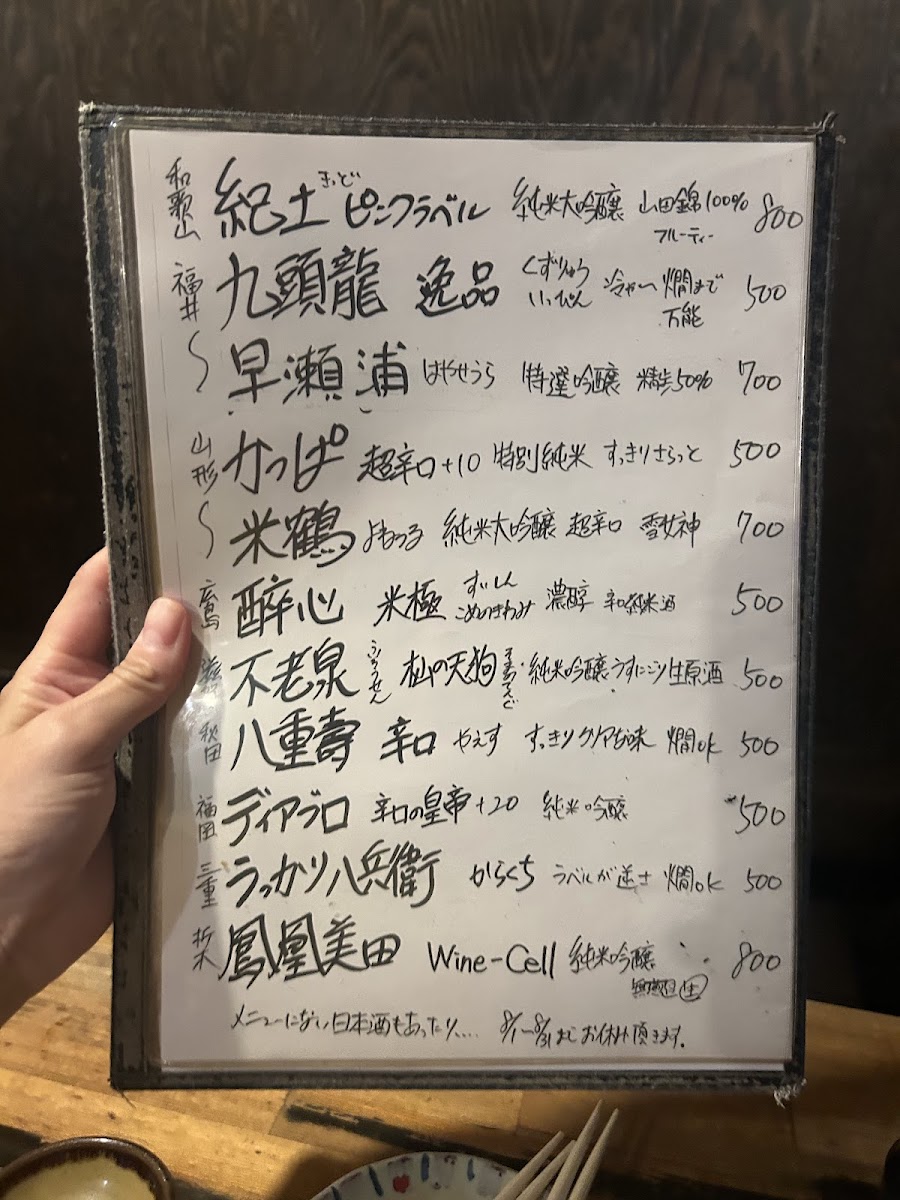 和歌山 紀土 きっど ピンクラベル 純米大吟醸 山田錦100% フルーティー 800
福井 九頭龍 逸品 くずりゅう いっぴん 冷や〜燗まで 万能 500
〜 早瀬浦 はやせうら 特選吟醸 精米50% 700
山形 かっぱ 超辛口+10 特別純米 すっきりさらっと 500
〜 米鶴 よねつる 純米大吟醸 超辛口 雪女神 700
広島 酔心 米極 すいしん こめのきわみ 濃醇 辛口純米酒 500
不老泉 ふろうせん 杣の天狗 そまのてんぐ 純米吟醸うすにごり生原酒 500
秋田 八重壽 辛口 やえす すっきりクリアな味 燗ok 500
福岡 ディアブロ 辛口の皇帝+20 純米吟醸 500
三重 うっかり八兵衛 からくち ラベルが逆さ 燗ok 500
栃木 鳳凰美田 Wine-Cell 純米吟醸 無濾過生 800
メニューにない日本酒もあったり.... 8/1〜8/31までお休み頂きます.